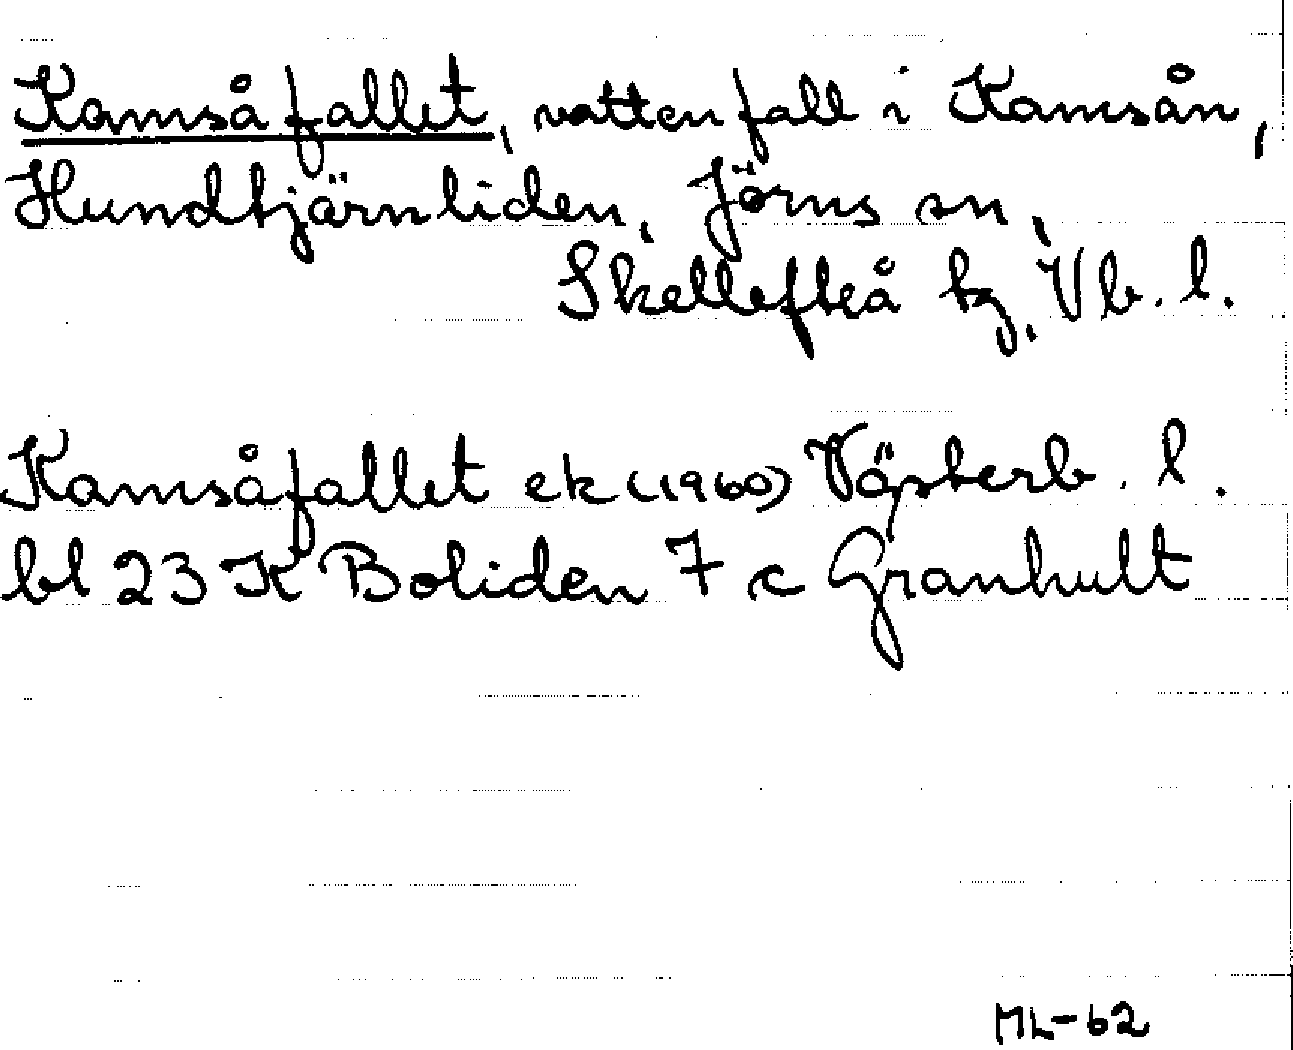 Kamsåfallet, vattenfall i Kamsån,
Hundtjärnliden, Jörns sn,
Skellefteå tg, Vb. l.
Kamsåfallet ek (1960) Västerb. l.
bl 23 K Boliden 7 c Granhult
ML-62